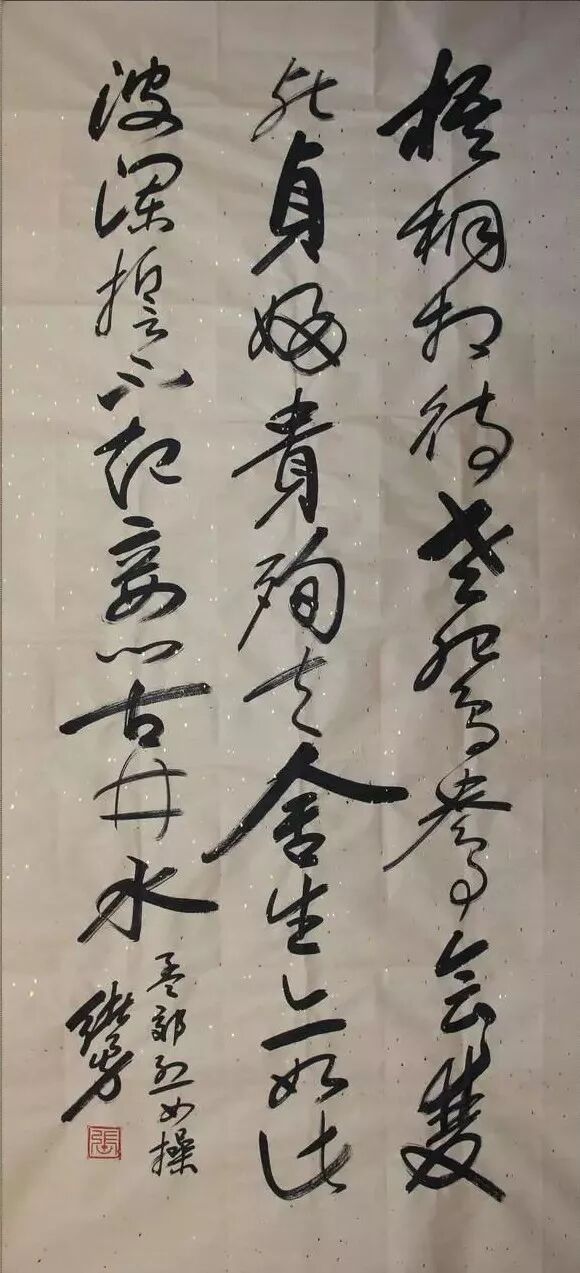 梧桐相待老鴛鴦会雙
死貞婦貴殉夫舍生亦如此
波澜誓不起妾心古井水
孟郊烈女操
張